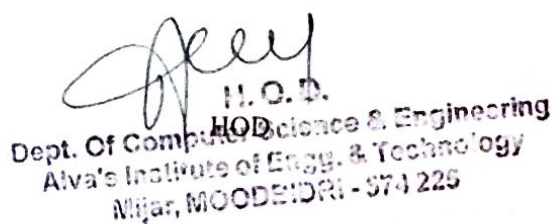 H. O. D.
HOD
Dept. Of Computer Science & Engineering
Alva's Institute of Engg. & Technology
Mijar, MOODBIDRI - 574 225